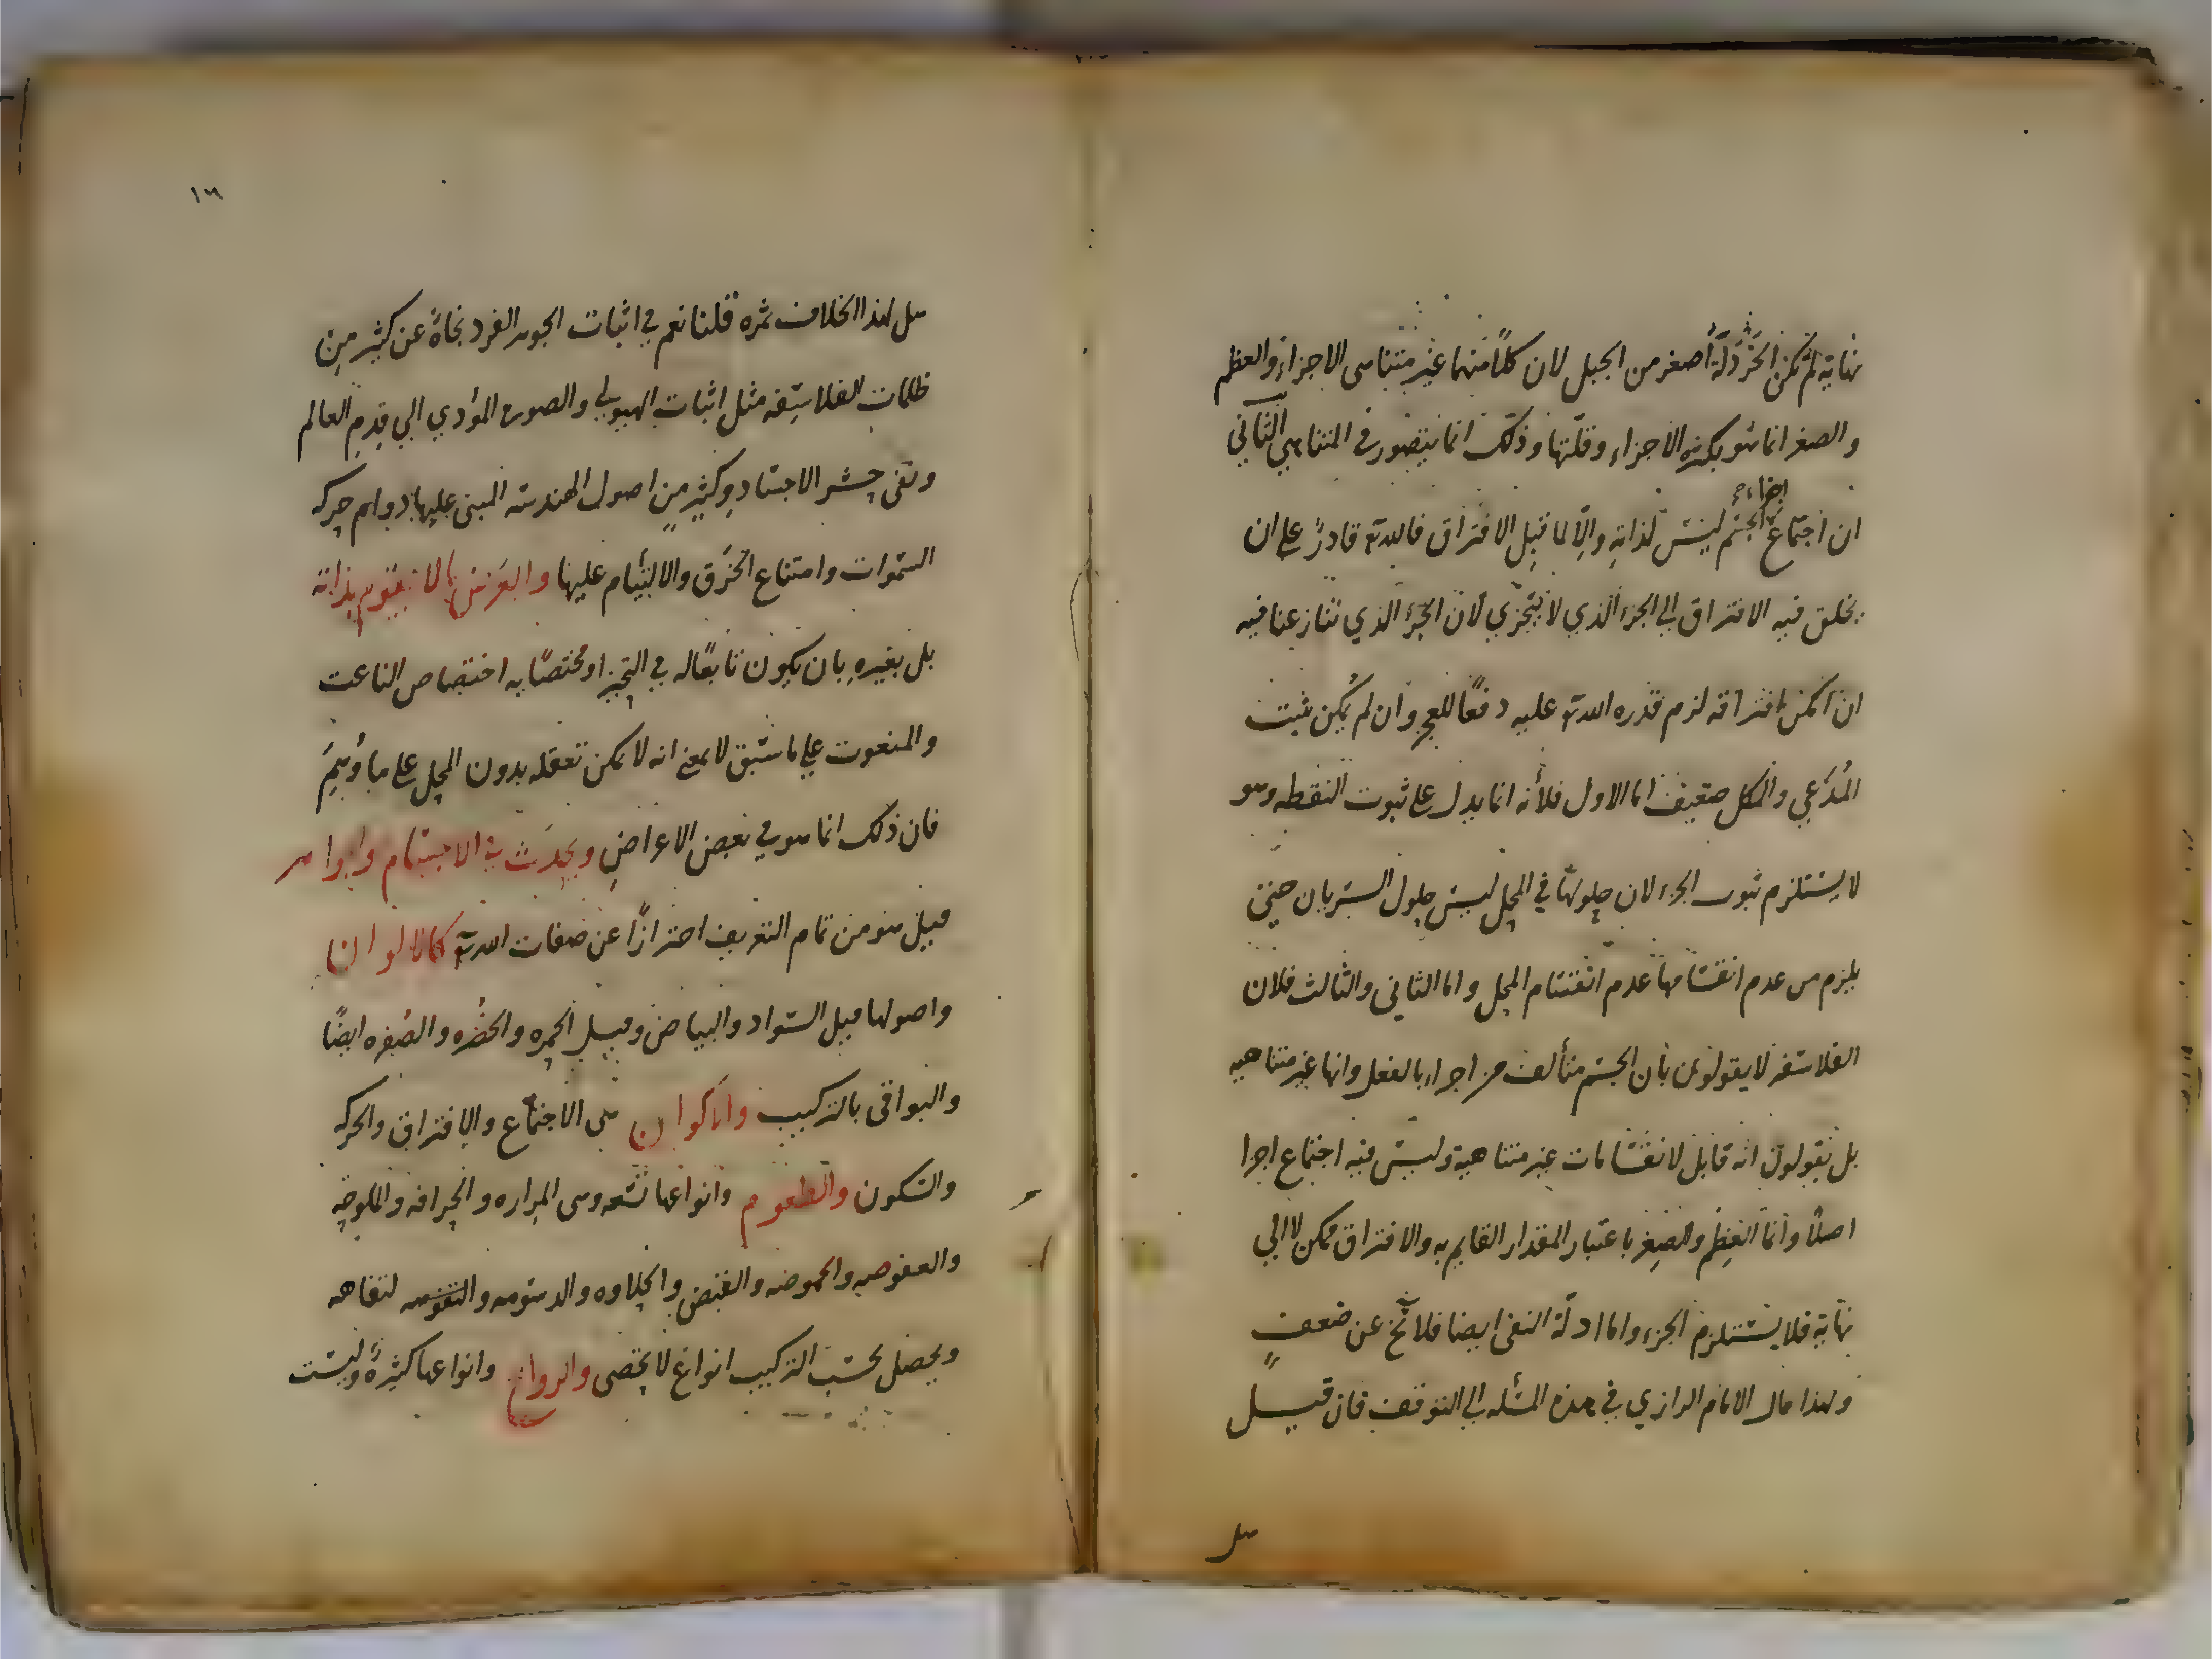 نهاية لم تكن الخَرْدَلَة أصغر من الجبل لان كلًا منهما غير متناهى الاجزاء والعظم
والصغر انما هو بكثرة الاجزاء وقلّتها وذلك انما يتصور فى المتناهي الثاني
ان اجتماع اجزاء الجسم ليس لذاته والّا لما قبل الافتراق فالله تع قادرٌ على ان
يخلق فيه الافتراق الي الجزء الذي لا يتجزّي لان الجزء الذي تنازعنا فيه
ان امكن افتراقه لزم قدره الله تع عليه دفعًا للعجز وان لم يُمكن يثبت
المُدّعي والكل ضعيف اما الاول فلأنه انما يدل على ثبوت النقطه وهو
لا يستلزم ثبوت الجزء لان حلولها في المحل ليس حلول السريان حتى
يلزم من عدم انقسامها عدم انقسام المحل واما الثانى والثالث فلان
الفلاسفه لا يقولون بان الجسم متألف من اجزاء بالفعل وانها غير متناهيه
بل يقولون انه قابل لانقسامات غير متناهية وليس فيه اجتماع اجزا
اصلًا وانما العِظم والصِغر باعتبار المقدار القايم به والافتراق ممكن لا الي
نهاية فلا يستلزم الجزء واما ادلّة النفى ايضا فلا تخ عن ضعفٍ
ولهذا مال الامام الرازي في هذه المسئله الي التوقف فان قيل
هل
١٦
هل لهذا الخلاف ثمره قلنا نعم في اثبات الجوهر الفرد نجاةٌ عن كثير مِن
ظلمات الفلاسِفه مثل اثبات الهيولي والصوره المؤدي الي قِدمِ العالم
ونفى حشر الاجساد وكثير من اصول الهندسه المبنى عليها دوام حركه
السّموات وامتناع الخَرق والالتيام عليها والعَرَض ما لا يقوم بذاته
بل بغيرهِ بان يكون تابعًا له في التحيز او مختصًا به اختصاص الناعت
والمنعوت على ما سبق لا بمعنى انه لا يمكن تعقله بدون المحل على ما وُهِمَ
فان ذلك انما هو في بعض الاعراضِ ويحدَث في الاجسام والجواهر
قيل هو من تمام التعريف احترازًا عن صفات الله تع كالالوان
واصولها قيل السّواد والبياض وقيل الحمره والخضُره والصُفره ايضًا
والبواقى بالتركيب والاكوان هى الاجتماع والافتراق والحركه
والسكون والطعوم وانواعها تسعه وهى المراره والحرافه والملوحه
والعفوصه والحموضه والقبض والحلاوه والدسومه والتفاهه
ويحصل بحسب التركيب انواعٌ لا تحصى والروايح وانواعها كثيرهٌ وليست